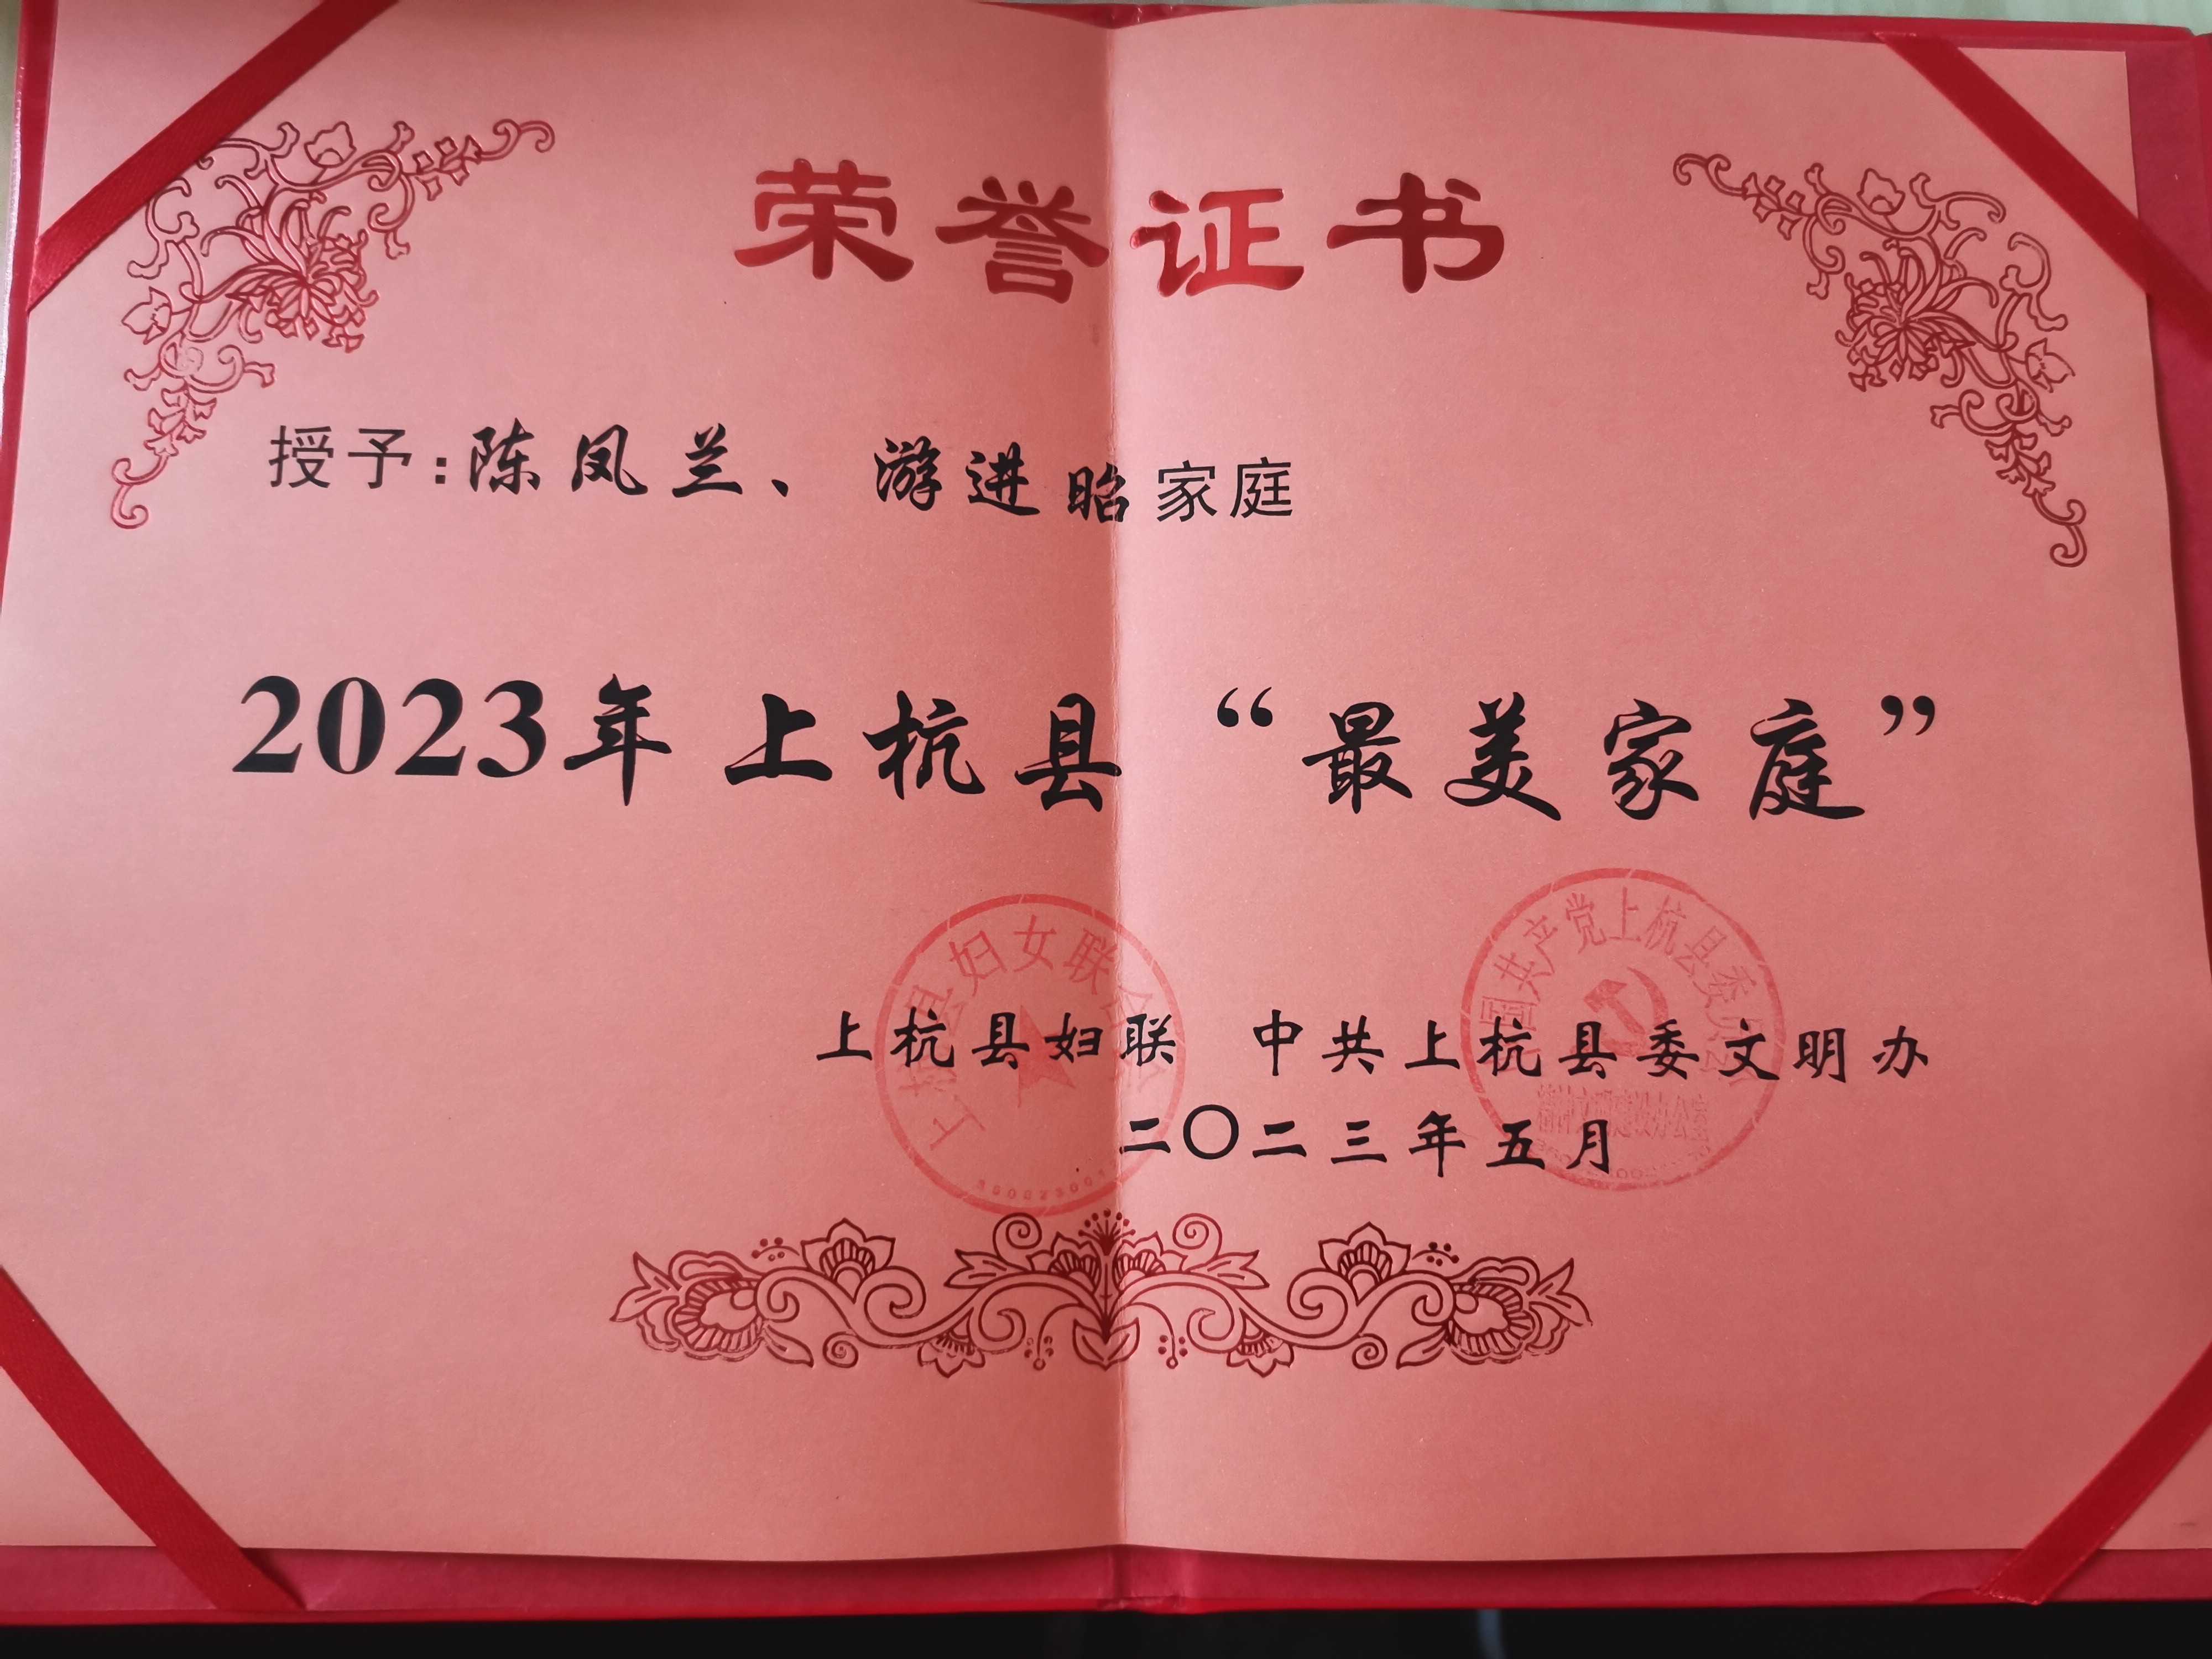 荣誉证书
授予:陈凤兰、游进昭家庭
2023年上杭县“最美家庭”
上杭县妇女联合会
中国共产党上杭县委员会
精神文明建设办公室
上杭县妇联 中共上杭县委文明办
二〇二三年五月